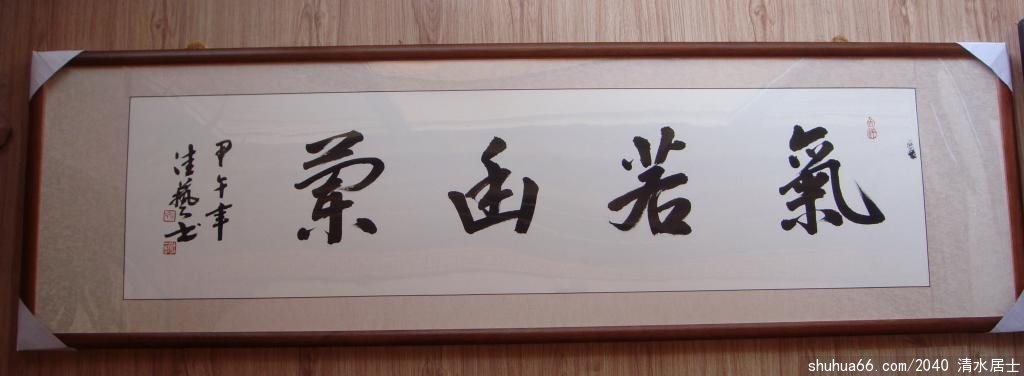 氣若幽蘭
甲午年
佳藝书
shuhua66.com/2040 清水居士